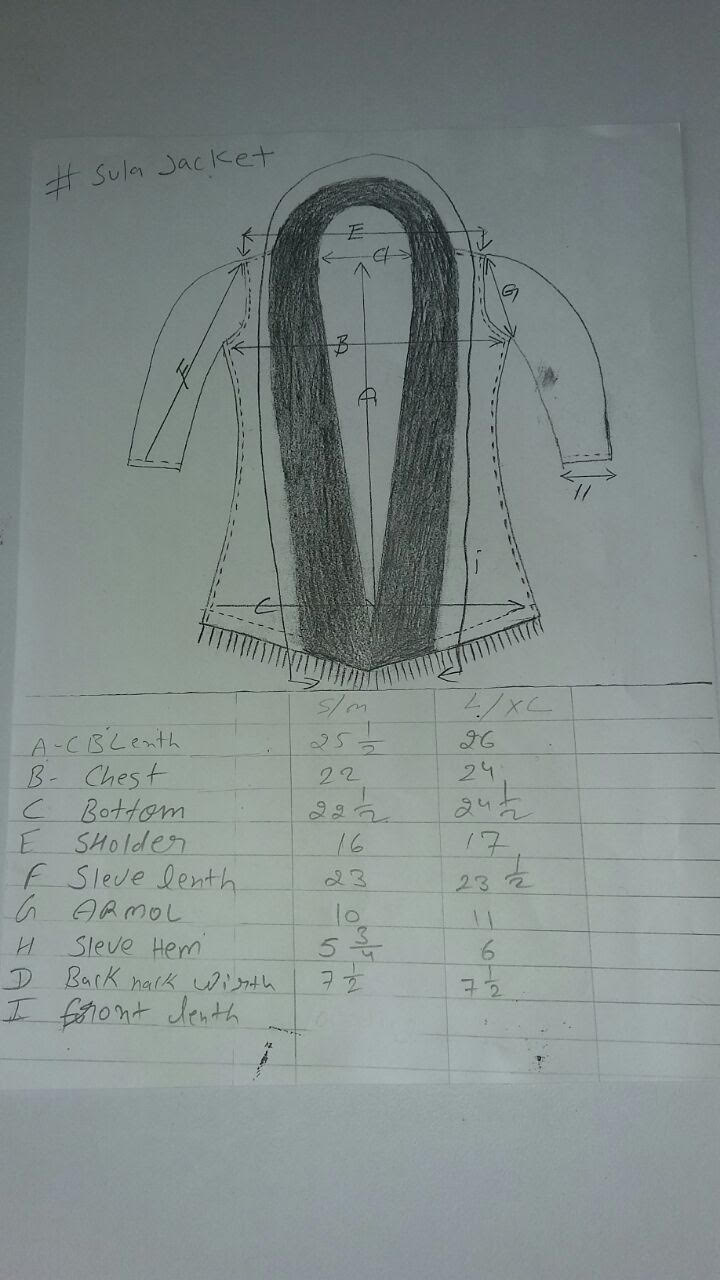 # Sula Jacket
E
d
G
B
F
A
H
i
C
S/m L/XL
A - C B Lenth 25 1/2 26
B - Chest 22 24
C Bottom 22 1/2 24 1/2
E SHolder 16 17
F Sleve lenth 23 23 1/2
G ARMOL 10 11
H Sleve Hem 5 3/4 6
D Back nack wirth 7 1/2 7 1/2
I front lenth